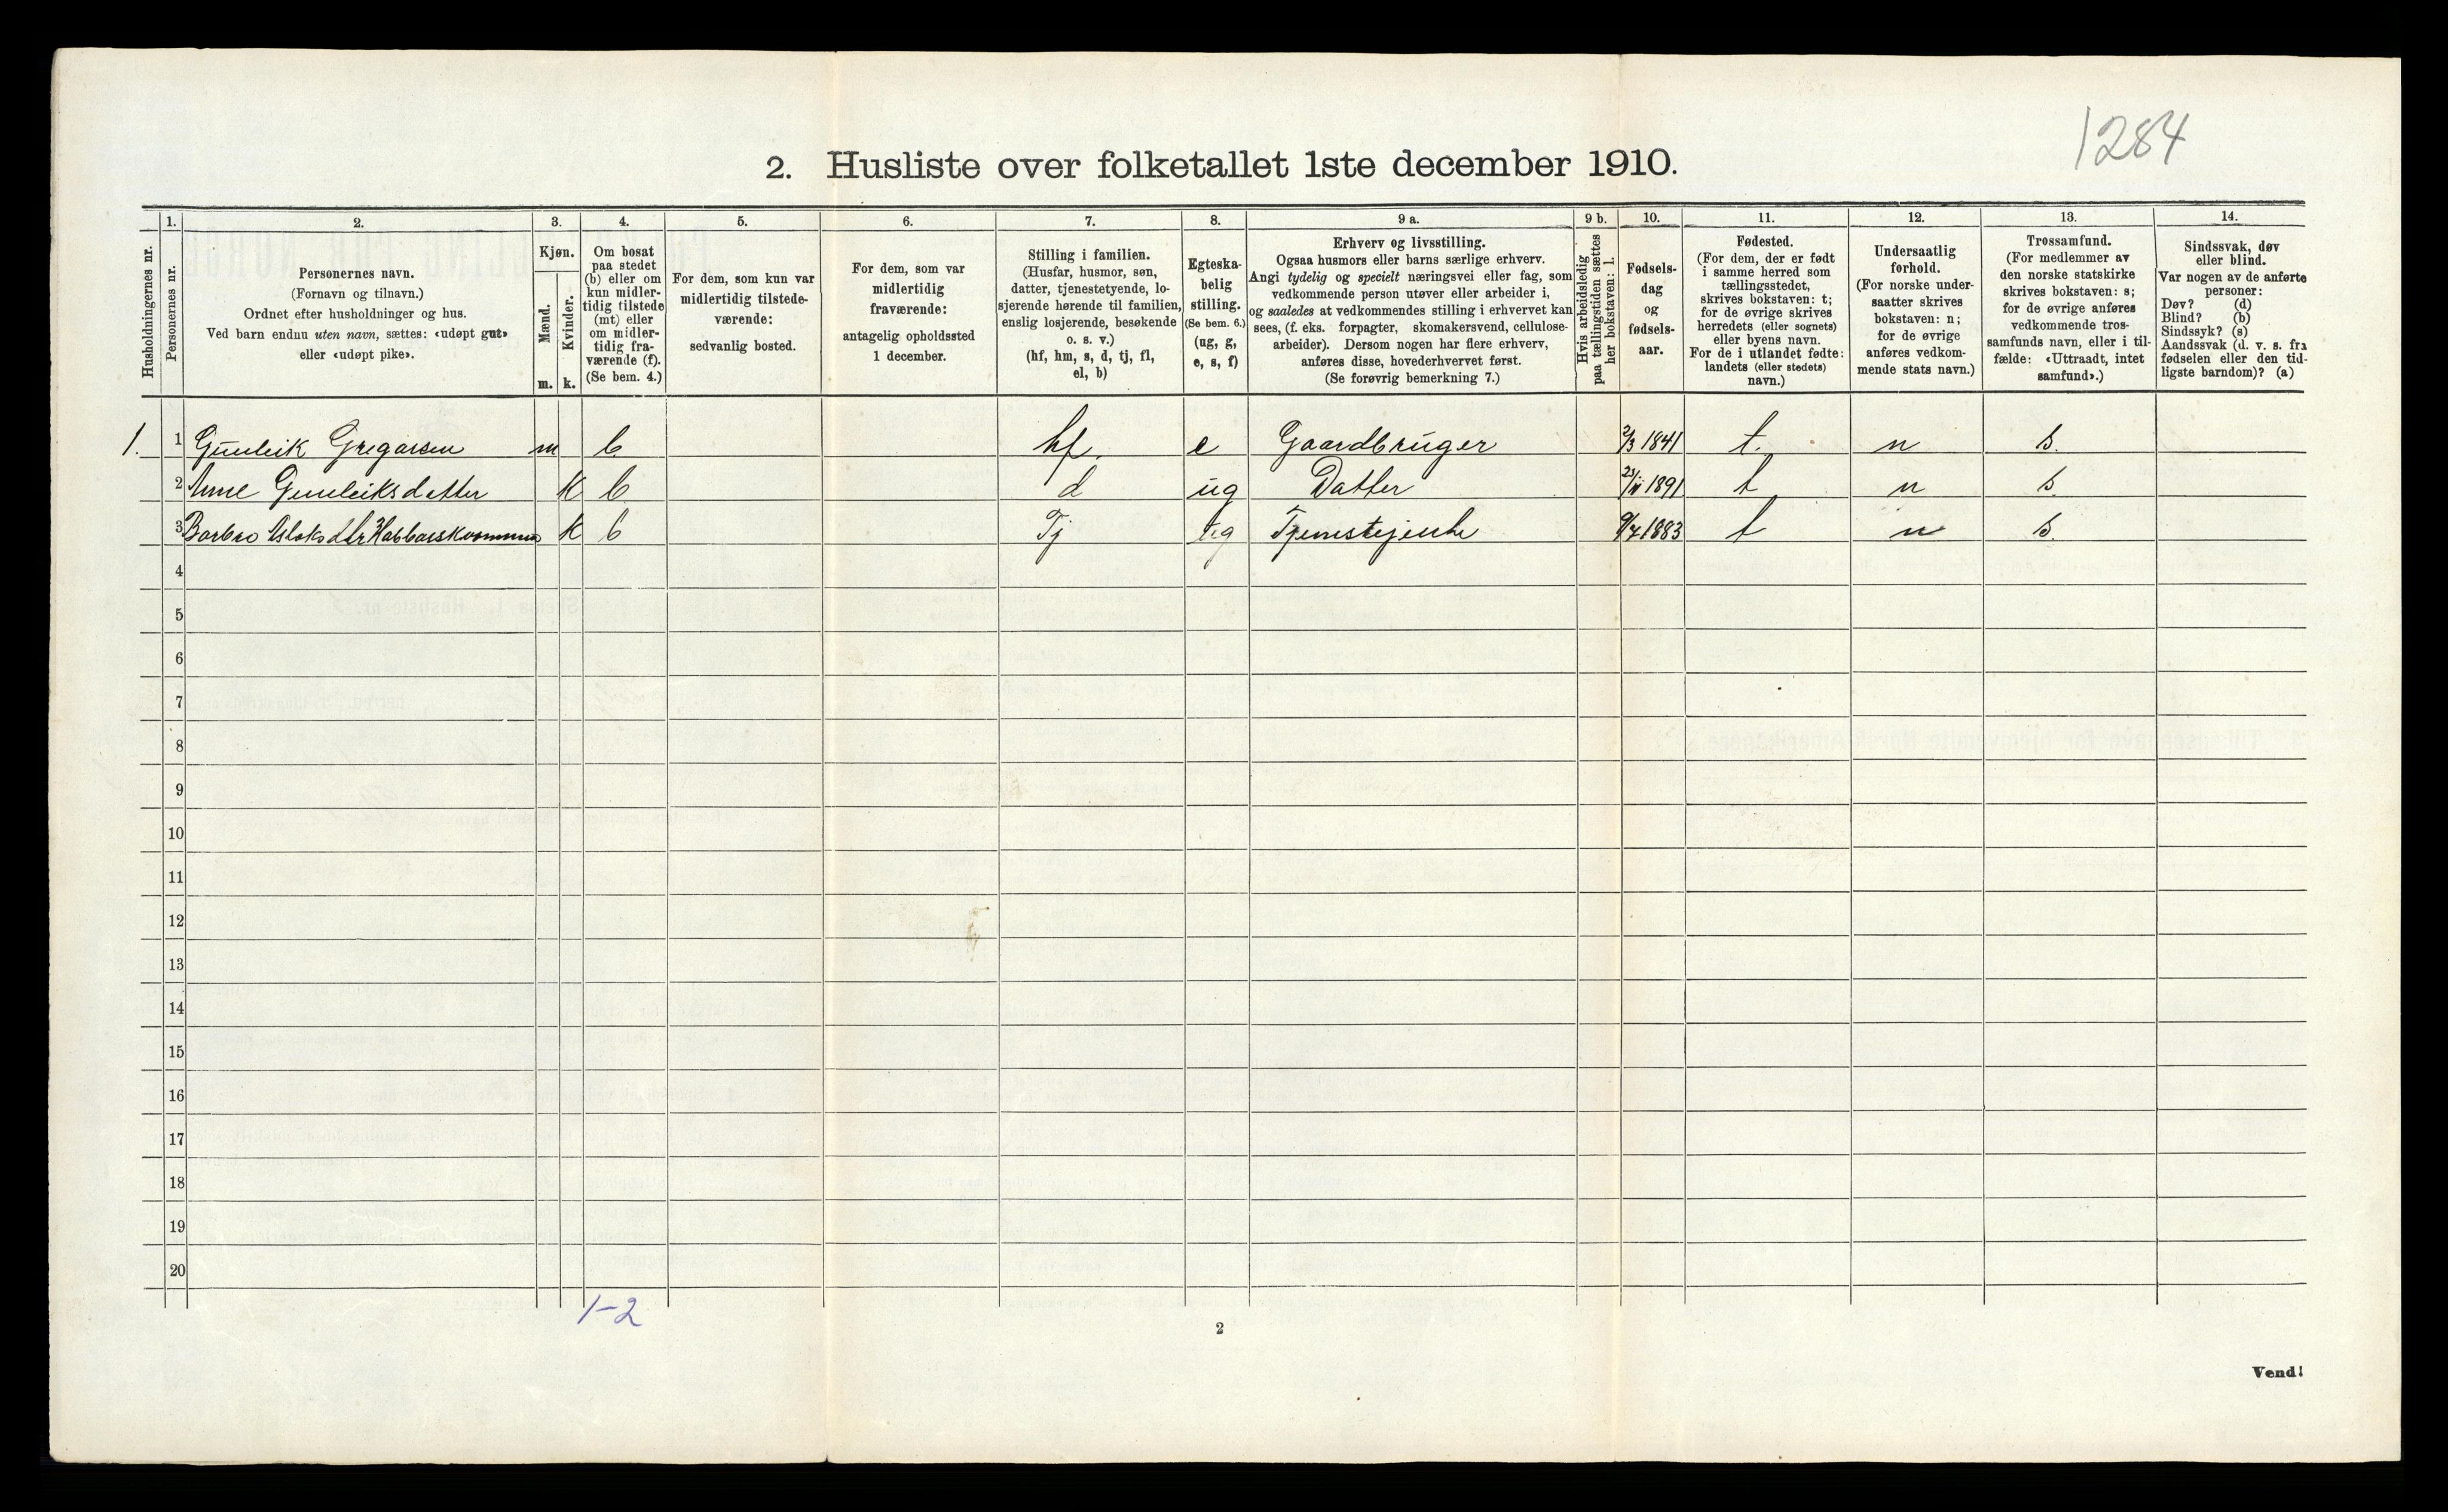 1284
2. Husliste over folketallet 1ste december 1910.
Husholdningernes nr.
1.
Personernes nr.
2.
Personernes navn.
(Fornavn og tilnavn.)
Ordnet efter husholdninger og hus.
Ved barn endnu uten navn, sættes: «udøpt gut»
eller «udøpt pike».
3.
Kjøn.
Mænd.
Kvinder.
m. k.
4.
Om bosat
paa stedet
(b) eller om
kun midler-
tidig tilstede
(mt) eller
om midler-
tidig fra-
værende (f).
(Se bem. 4.)
5.
For dem, som kun var
midlertidig tilstede-
værende:
sedvanlig bosted.
6.
For dem, som var
midlertidig
fraværende:
antagelig opholdssted
1 december.
7.
Stilling i familien.
(Husfar, husmor, søn,
datter, tjenestetyende, lo-
sjerende hørende til familien,
enslig losjerende, besøkende
o. s. v.)
(hf, hm, s, d, tj, fl,
el, b)
8.
Egteska-
belig
stilling.
(Se bem. 6.)
(ug, g,
e, s, f)
9 a.
Erhverv og livsstilling.
Ogsaa husmors eller barns særlige erhverv.
Angi tydelig og specielt næringsvei eller fag, som
vedkommende person utøver eller arbeider i,
og saaledes at vedkommendes stilling i erhvervet kan
sees, (f. eks. forpagter, skomakersvend, cellulose-
arbeider). Dersom nogen har flere erhverv,
anføres disse, hovederhvervet først.
(Se forøvrig bemerkning 7.)
9 b.
Hvis arbeidsledig
paa tællingstiden sættes
her bokstaven: l.
10.
Fødsels-
dag
og
fødsels-
aar.
11.
Fødested.
(For dem, der er født
i samme herred som
tællingsstedet,
skrives bokstaven: t;
for de øvrige skrives
herredets (eller sognets)
eller byens navn.
For de i utlandet fødte:
landets (eller stedets)
navn.)
12.
Undersaatlig
forhold.
(For norske under-
saatter skrives
bokstaven: n;
for de øvrige
anføres vedkom-
mende stats navn.)
13.
Trossamfund.
(For medlemmer av
den norske statskirke
skrives bokstaven: s;
for de øvrige anføres
vedkommende tros-
samfunds navn, eller i til-
fælde: «Uttraadt, intet
samfund».)
14.
Sindssvak, døv
eller blind.
Var nogen av de anførte
personer:
Døv? (d)
Blind? (b)
Sindssyk? (s)
Aandssvak (d. v. s. fra
fødselen eller den tid-
ligste barndom)? (a)
1. 1 Gunleik Gregarsen m b hf. e Gaardbruger 2/3 1841 t. n s.
2 Anne Gunleiksdatter k b d ug Datter 1891 t n s.
3 Barbro Aslaksdtr k b Tj ug 9/7 1883 t n s.
4
5
6
7
8
9
10
11
12
13
14
15
16
17
18
19
20
1-2
2
Vend!